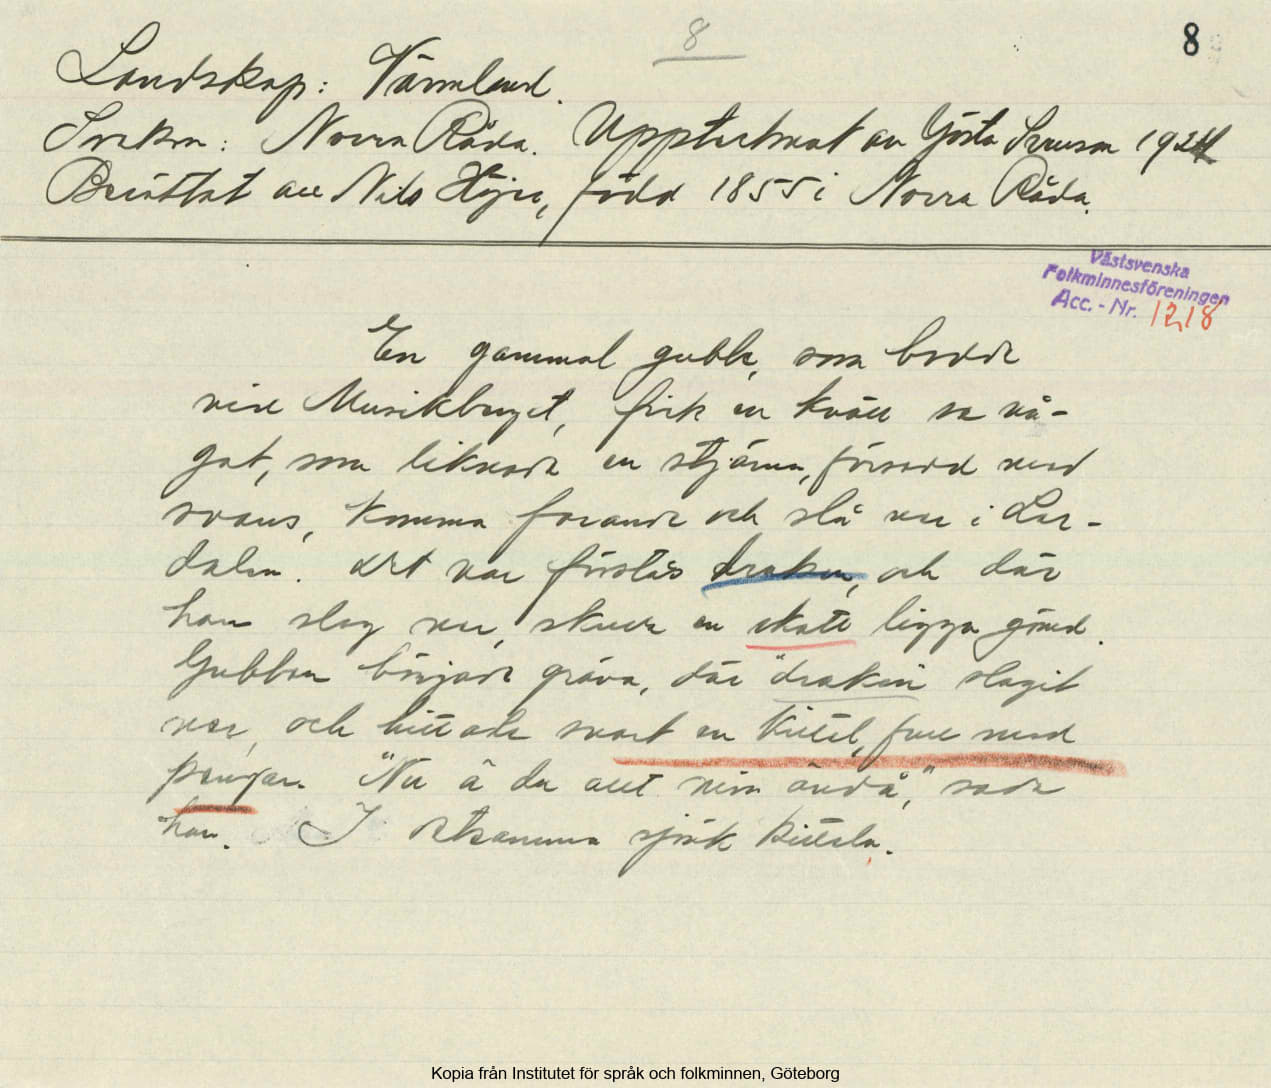 8
8
Landskap: Värmland.
Socken: Norra Råda. Upptecknat av Gösta Svenson 1924
Berättat av Nils Höjer, född 1855 i Norra Råda.
Västsvenska
Folkminnesföreningen
Acc. - Nr. 1218
En gammal gubbe, som bodde
vid Musikberget, fick en kväll se nå-
got, som liknade en stjärna, försedd med
svans, komma farande och slå ner i Ler-
dalen. Det var förstås draken, och där
han slog ner, skulle en skatt ligga gömd.
Gubben började gräva, där "draken" slagit
ner, och hittade snart en kittel, full med
pengar. "Nu ä du allt min ändå," sade
han. I detsamma sjönk kitteln.
Kopia från Institutet för språk och folkminnen, Göteborg